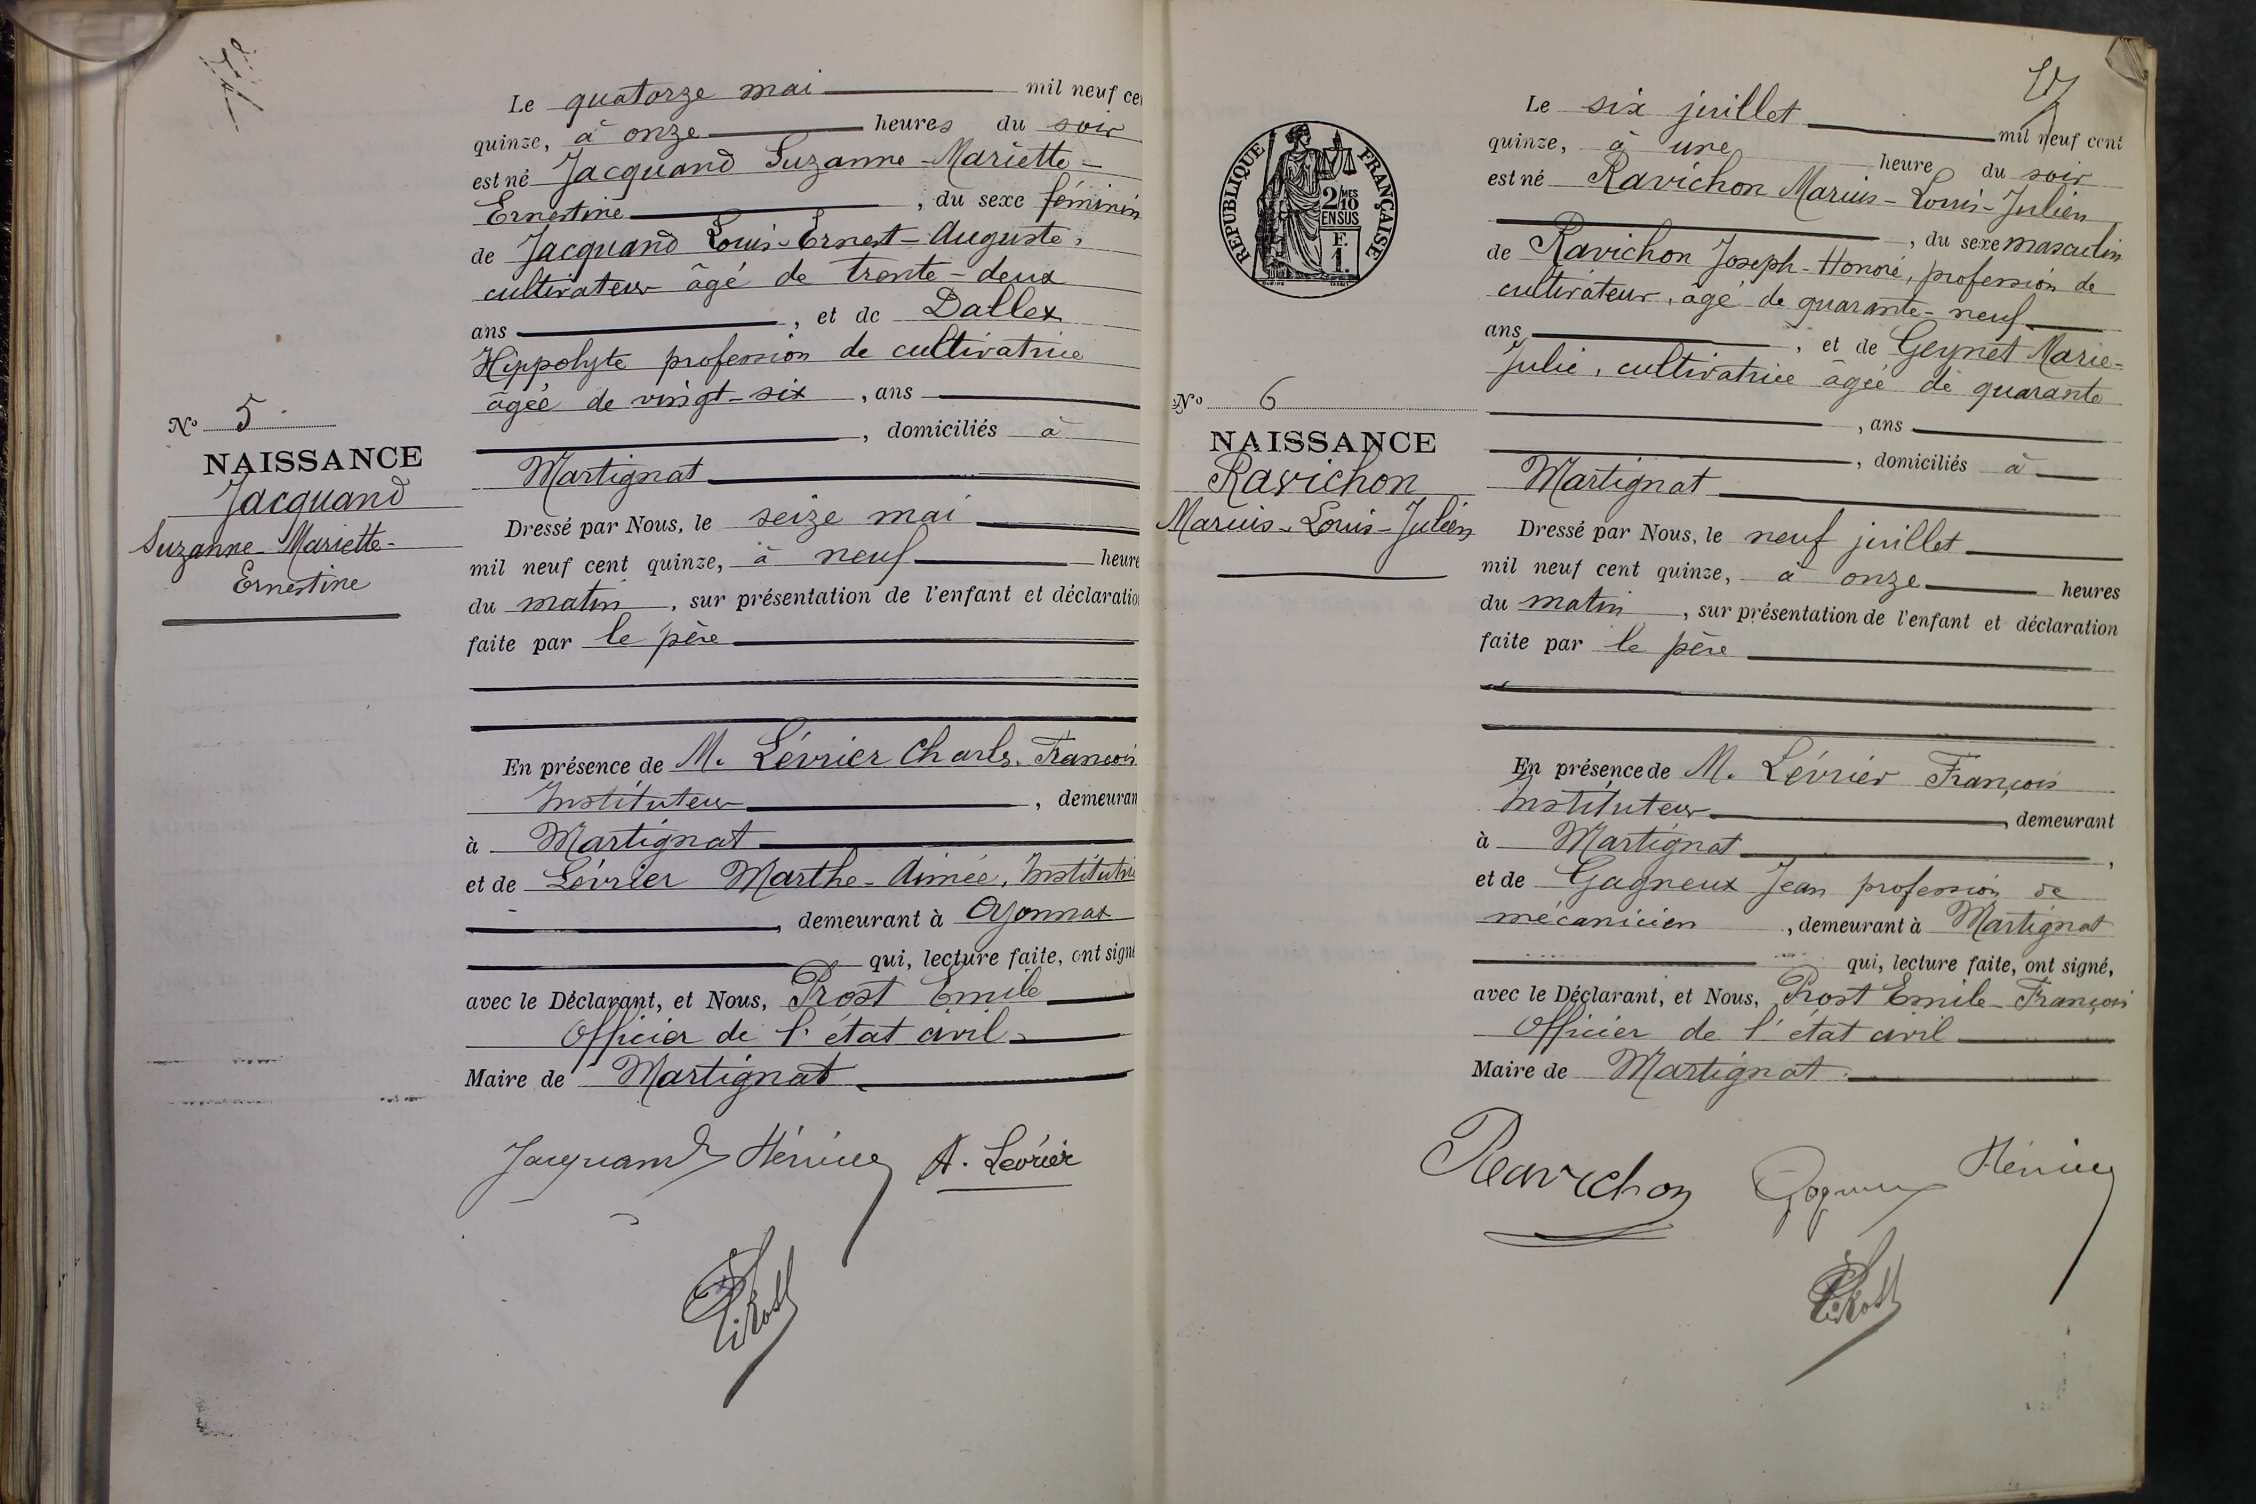 Le quatorze mai mil neuf ce
quinze, à onze heures du soir
est né Jacquand Suzanne-Mariette-
Ernestine, du sexe féminin
de Jacquand Louis-Ernest-Auguste,
cultivateur âgé de trente-deux
ans, et de Dallex
Hippolyte profession de cultivatrice
âgée de vingt-six, ans
, domiciliés à
Martignat
Dressé par Nous, le seize mai
mil neuf cent quinze, à neuf heure
du matin, sur présentation de l'enfant et déclaratio
faite par le père
En présence de M. Lévrier Charles-François
Instituteur, demeuran
à Martignat
et de Lévrier Marthe-Aimée, Institutri
, demeurant à Oyonnax
qui, lecture faite, ont signé
avec le Déclarant, et Nous, Prost Emile
Officier de l'état civil
Maire de Martignat
Jacquand A. Levrier
No 5
NAISSANCE
Jacquand
Suzanne-Mariette-
Ernestine
REPUBLIQUE FRANÇAISE
2/10 MES
EN SUS
F.
1.
No 6
NAISSANCE
Ravichon
Marius-Louis-Julien
Le six juillet mil neuf cent
quinze, à une heure du soir
est né Ravichon Marius-Louis-Julien
, du sexe masculin
de Ravichon Joseph-Honoré, profession de
cultivateur, âgé de quarante-neuf
ans, et de Geynet Marie-
Julie, cultivatrice âgée de quarante
, ans
, domiciliés à
Martignat
Dressé par Nous, le neuf juillet
mil neuf cent quinze, à onze heures
du matin, sur présentation de l'enfant et déclaration
faite par le père
En présence de M. Lévrier François
Instituteur, demeurant
à Martignat,
et de Gagneux Jean profession de
mécanicien, demeurant à Martignat
qui, lecture faite, ont signé,
avec le Déclarant, et Nous, Prost Emile-François
Officier de l'état civil
Maire de Martignat
Ravichon